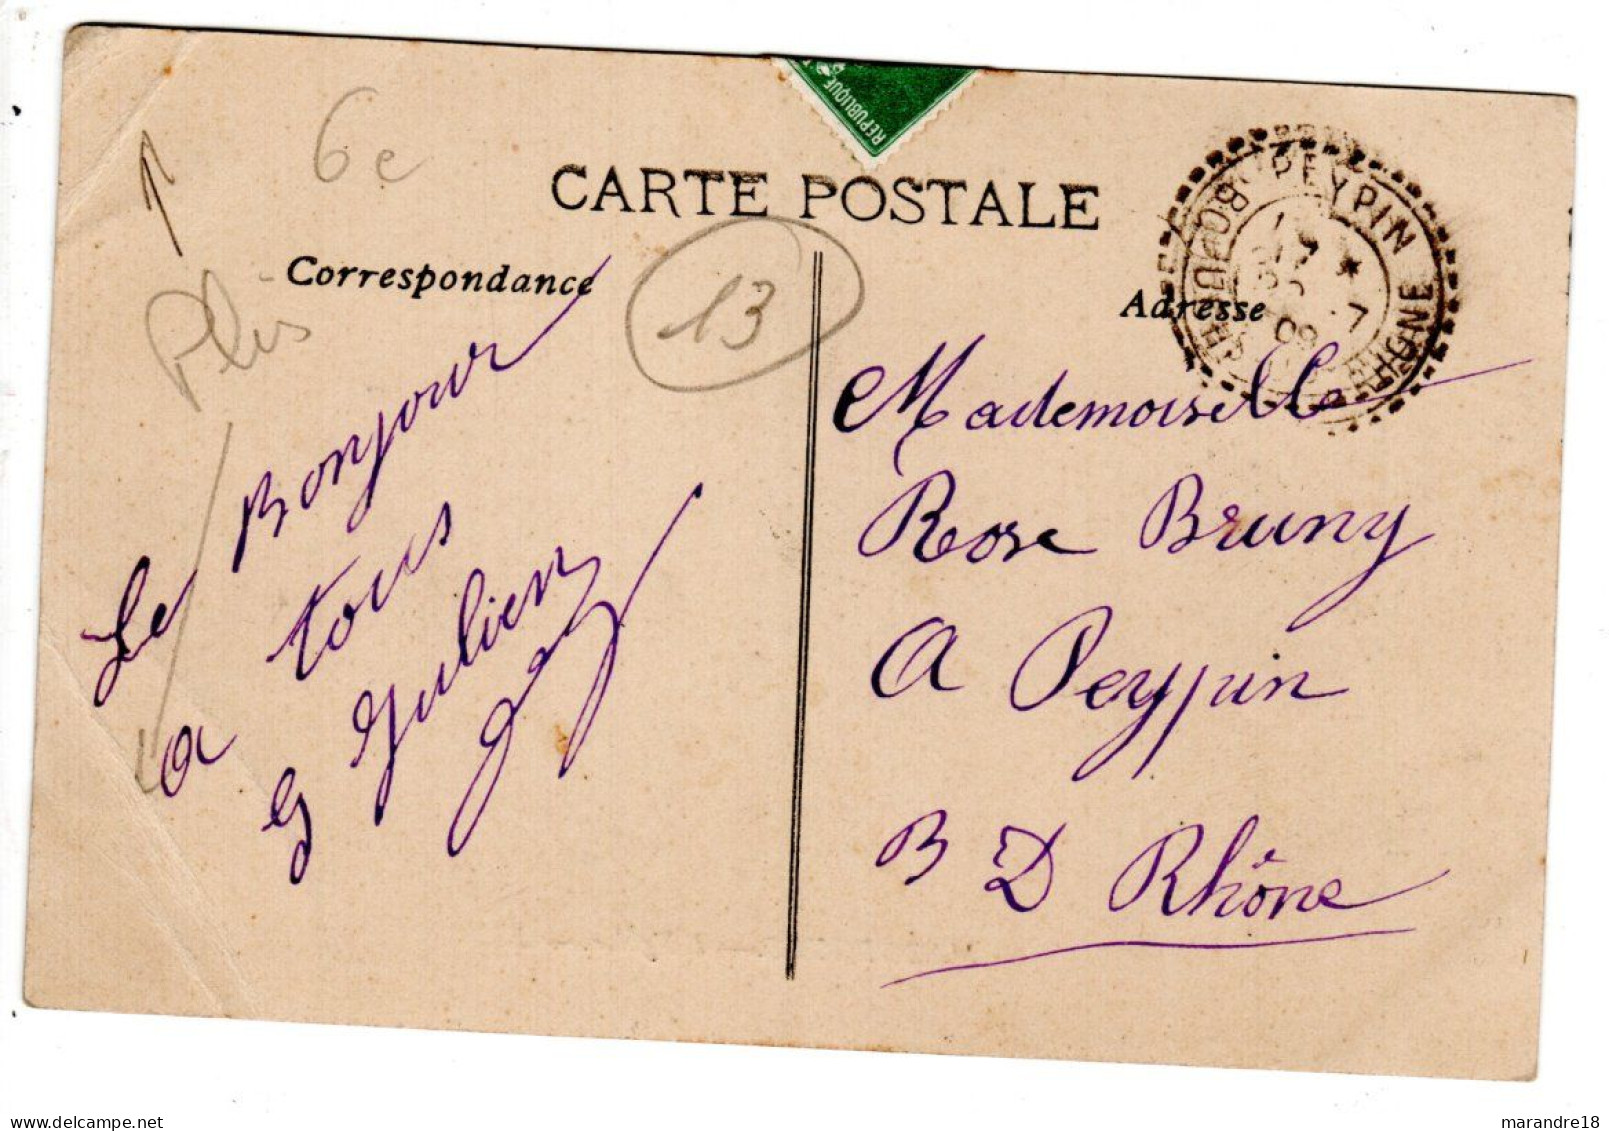 6e
RÉPUBLIQUE
CARTE POSTALE
PEYPIN
BOUCHES DU RHONE
7
09
Correspondance
Adresse
13
Plis
Le Bonjour
a tous
G Julien
Mademoiselle
Rose Bruny
A Peypin
B D Rhône
delcampe.net
marandre18